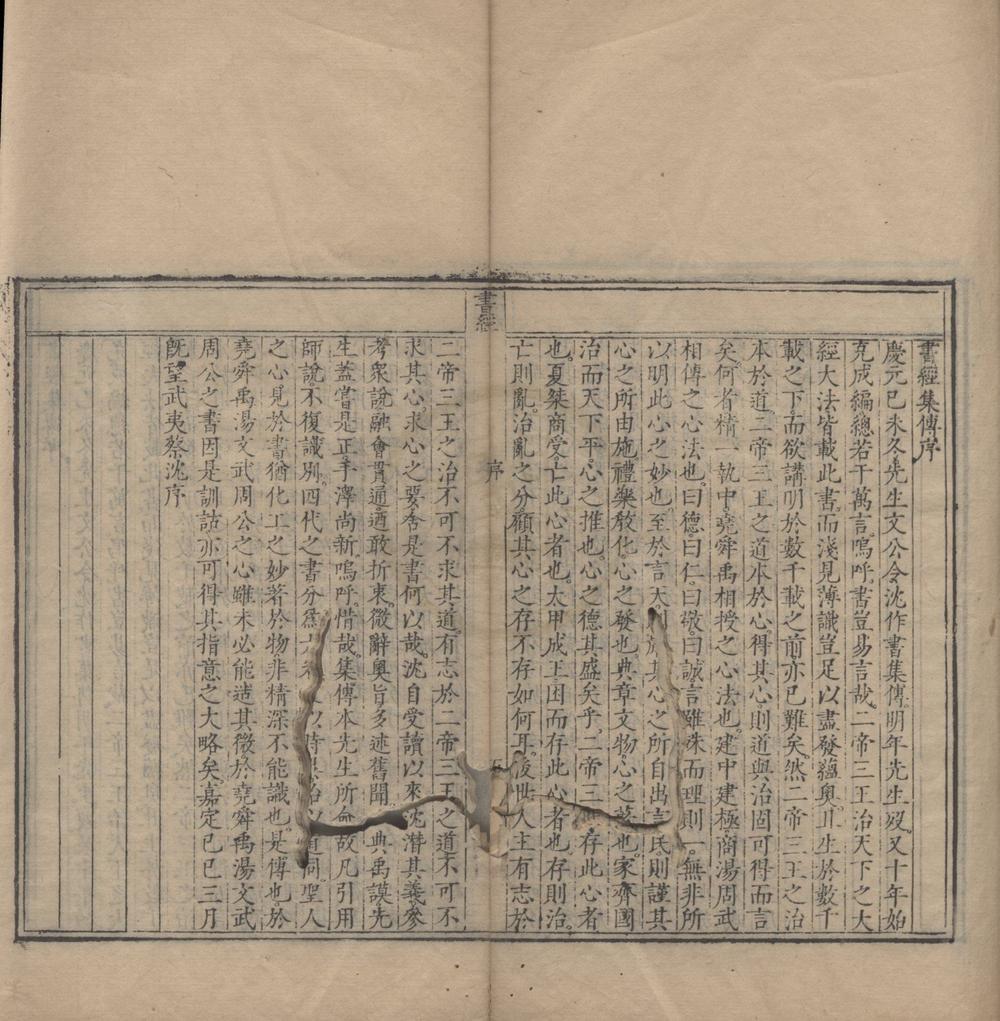 書經集傳序
慶元己未冬先生文公令沈作書集傳明年先生歿又十年始
克成編總若干萬言嗚呼書豈易言哉二帝三王治天下之大
經大法皆載此書而淺見薄識豈足以盡發蘊奧且生於數千
載之下而欲講明於數千載之前亦已難矣然二帝三王之治
本於道二帝三王之道本於心得其心則道與治固可得而言
矣何者精一執中堯舜禹相授之心法也建中建極商湯周武
相傳之心法也曰德曰仁曰敬曰誠言雖殊而理則一無非所
以明此心之妙也至於言天則其心之所自出言民則謹其
心之所由施禮樂敎化心之發也典章文物心之著也家齊國
治而天下平心之推也心之德其盛矣乎二帝三存此心者
也夏桀商受亡此心者也太甲成王困而存此心者也存則治
亡則亂治亂之分顧其心之存不存如何耳後世人主有志於
書經
序
二帝三王之治不可不求其道有志於二帝三王之道不可不
求其心求心之要舍是書何以哉沈自受讀以來沈潛其義參
考衆說融會貫通迺敢折衷微辭奧旨多述舊聞典禹謨先
生蓋嘗是正手澤尚新嗚呼惜哉集傳本先生所命故凡引用
師說不復識別四代之書分爲六以時治以道同聖人
之心見於書猶化工之妙著於物非精深不能識也是傳也於
堯舜禹湯文武周公之心雖未必能造其微於堯舜禹湯文武
周公之書因是訓詁亦可得其指意之大略矣嘉定己巳三月
旣望武夷蔡沈序